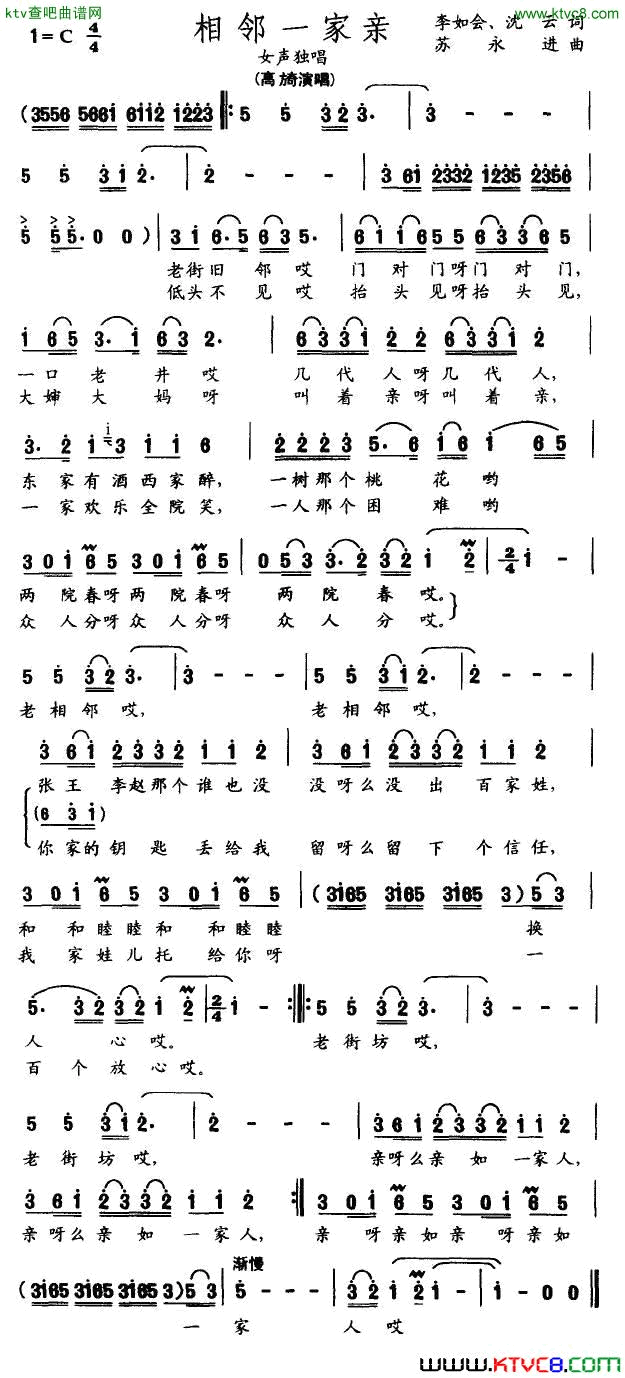 ktv查吧曲谱网
www.ktvc8.com
1=C 4/4
相邻一家亲
李如会、沈 云 词
苏 永 进 曲
女声独唱
(高旖演唱)
(3556 5661 6112 1223 5 5 3 2 3· 3 - - -
5 5 3 1 2· 2 - - 3 61 2332 1235 2356
5 5 5· 0 0 ) 3 1 6·5 6 3 5· 6 1 1 6 5 5 6 3 3 6 5
老街旧 邻哎 门 对 门呀门 对 门,
低头不 见哎 抬 头 见呀抬 头 见,
1 6 5 3· 1 6 3 2· 6 3 3 1 2 2 6 3 3 1 2
一口 老 井哎 几 代 人 呀几 代 人,
大婶 大 妈呀 叫 着 亲 呀叫 着 亲,
3· 2 1 3 1 1 6 2 2 2 3 5· 6 1 6 1 6 5
东 家有酒西家醉, 一树那个桃 花 哟
一 家欢乐全院笑, 一人那个困 难 哟
3 0 1 6 5 3 0 1 6 5 0 5 3 3· 2 3 2 1 2 2/4 1 -
两 院春呀两 院春呀 两 院 春 哎。
众 人分呀众 人分呀 众 人 分 哎。
5 5 3 2 3· 3 - - 5 5 3 1 2· 2 - -
老相邻哎, 老相邻哎,
3 6 1 2 3 3 2 1 1 2 3 6 1 2 3 3 2 1 1 2
张 王 李赵那个谁也没 没呀么没 出 百家姓,
(6 3 1)
你家的钥 匙 丢给我 留呀么留 下 个信任,
3 0 1 6 5 3 0 1 6 5 (3165 3165 3165 3) 5 3
和 和睦睦和 和睦睦 换
我 家娃儿托 给你呀 一
5· 3 2 3 2 1 2 2/4 1 - 5 5 3 2 3· 3 - -
人 心哎。 老街坊哎,
百个放心哎。
5 5 3 1 2· 2 - - - 3 6 1 2 3 3 2 1 1 2
老街坊哎, 亲呀么亲 如 一家人,
3 6 1 2 3 3 2 1 1 2 3 0 1 6 5 3 0 1 6 5
亲呀么亲 如 一家人, 亲 呀亲如亲 呀亲如
渐慢
(3165 3165 3165 3) 5 3 5 - - 3 2 1 2 1 - 1 - 0 0
一 家 人 哎
www.KTVC8.com